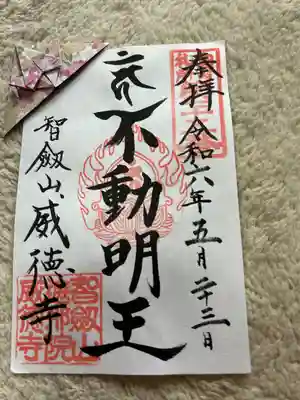 奉拝 令和六年五月二十三日
不動明王
智劔山 威徳寺
智劔山
威徳寺